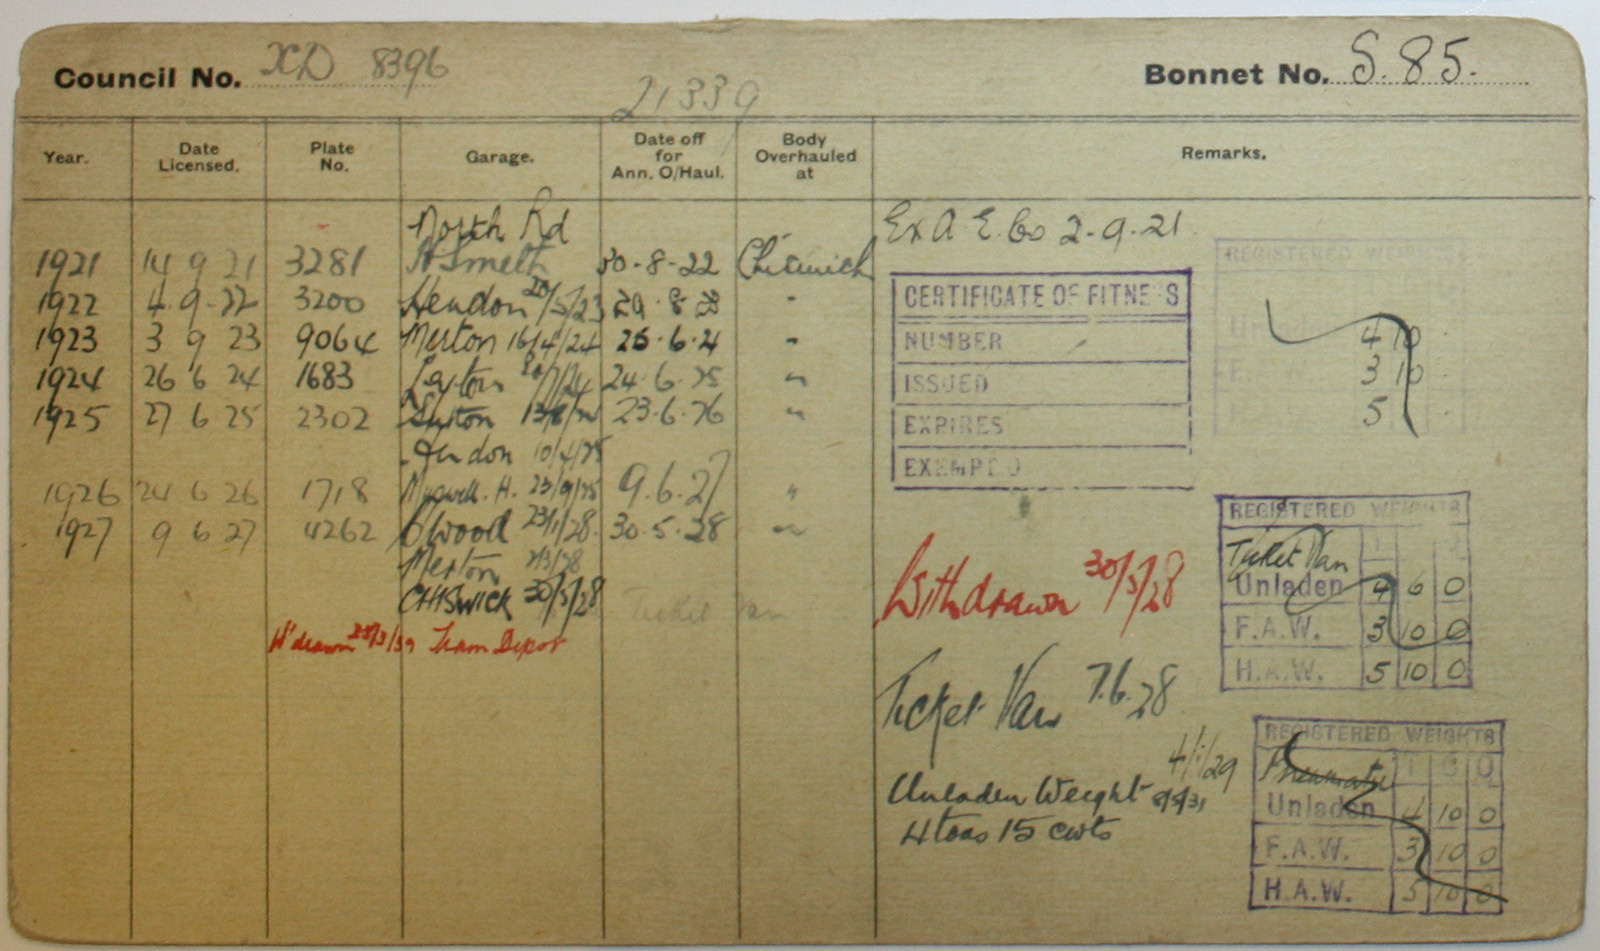 Council No. XD 8396
Bonnet No. S. 85.
21339
Year. Date Licensed. Plate No. Garage. Date off for Ann. O/Haul. Body Overhauled at Remarks.
North Rd
Ex A E Co 2-9-21.
1921 14 9 21 3281 H Smith 30-8-22 Chiswick
1922 4-9-22 3200 Hendon 20/5/23 29.8.23 "
1923 3 9 23 9064 Merton 16/4/24 25.6.24 "
1924 26 6 24 1683 24.6.25 "
1925 27 6 25 2302 Sutton 23.6.26 "
Hendon 10/4/25
1926 24 6 26 1718 Muswell. H. 23/9/25 9.6.27 "
1927 9 6 27 4262 23/1/28. 30.5.28 "
Merton 2/3/28
CHISWICK 30/5/28
Ticket Van
W'drawn 23/3/39 Tram Depot
CERTIFICATE OF FITNESS
NUMBER
ISSUED
EXPIRES
EXEMPED
REGISTERED WEIGHTS
Unladen 4 10
F.A.W. 3 10
5
Withdrawn 30/5/28
REGISTERED WEIGHTS
Ticket Van
Unladen 4 6 0
F.A.W. 3 10 0
H.A.W. 5 10 0
Ticket Van 7.6.28
4/1/29
Unladen Weight 8/5/31
4 tons 15 cwts
REGISTERED WEIGHTS
Pneumatic T C Q
Unladen 4 10 0
F.A.W. 3 10 0
H.A.W. 5 10 0